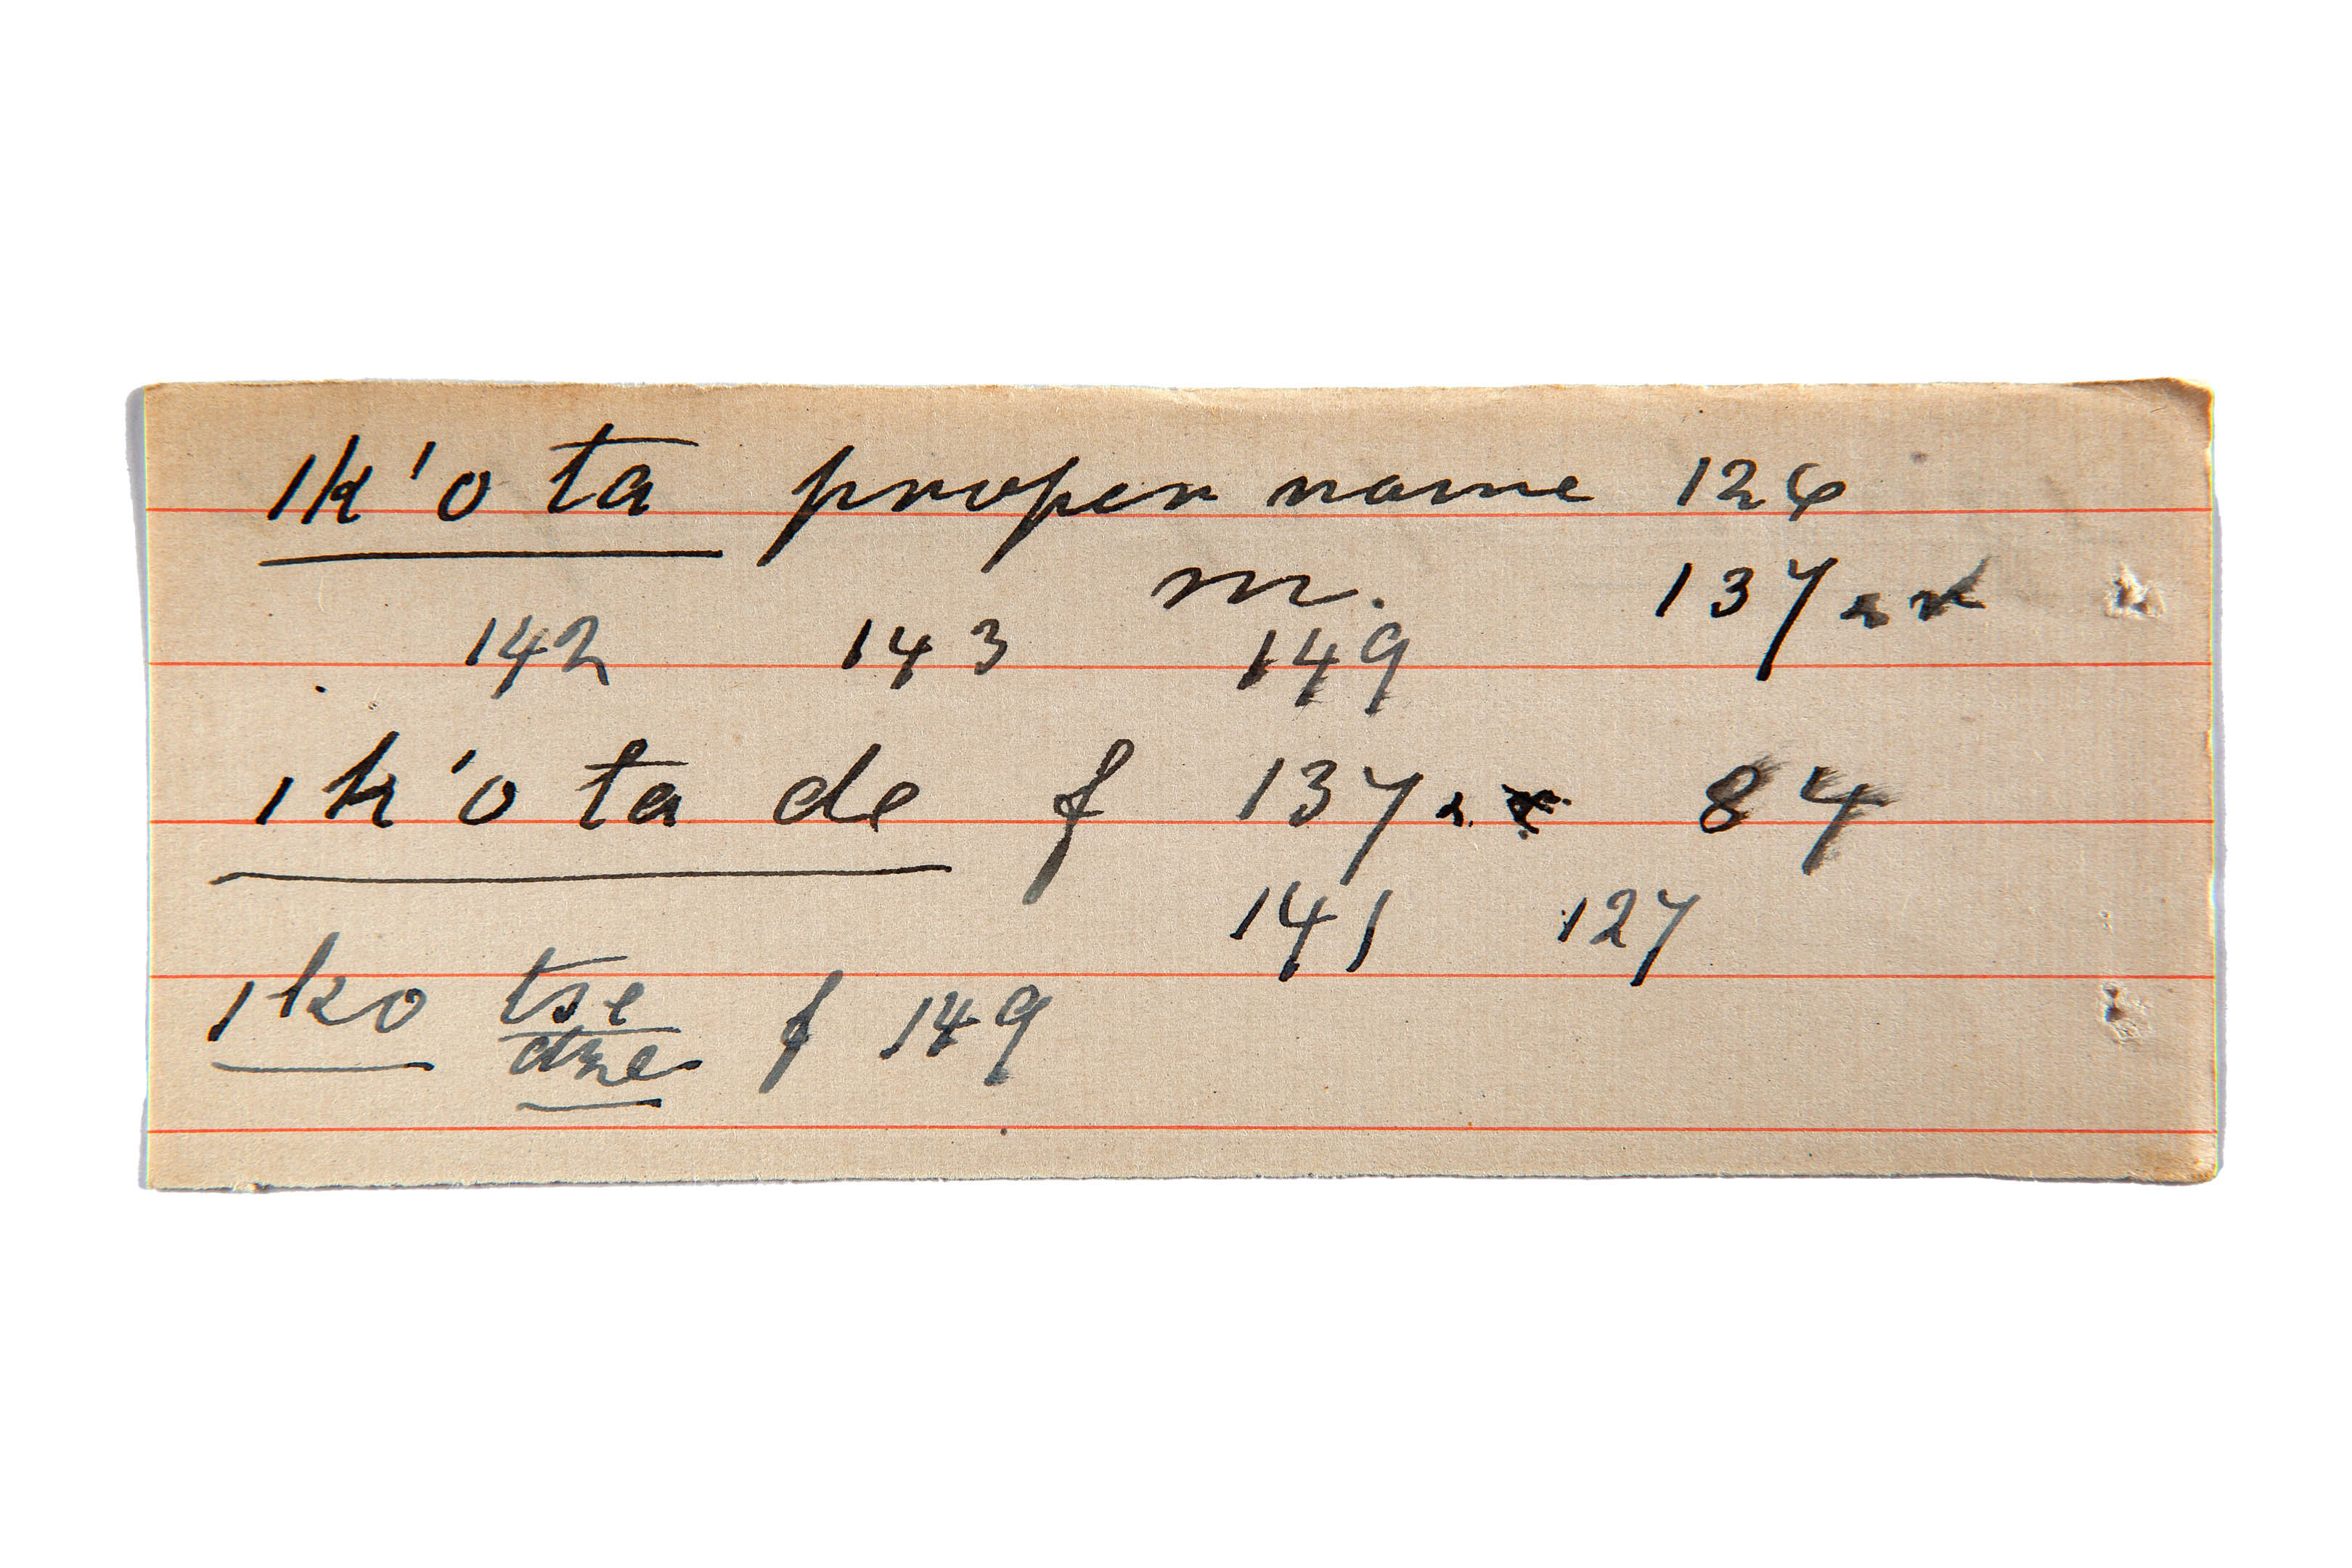 ık'o ta proper name 126
m. 137
142 143 149
ık'o ta de f 137 84
141 127
ıko tse f 149
dze